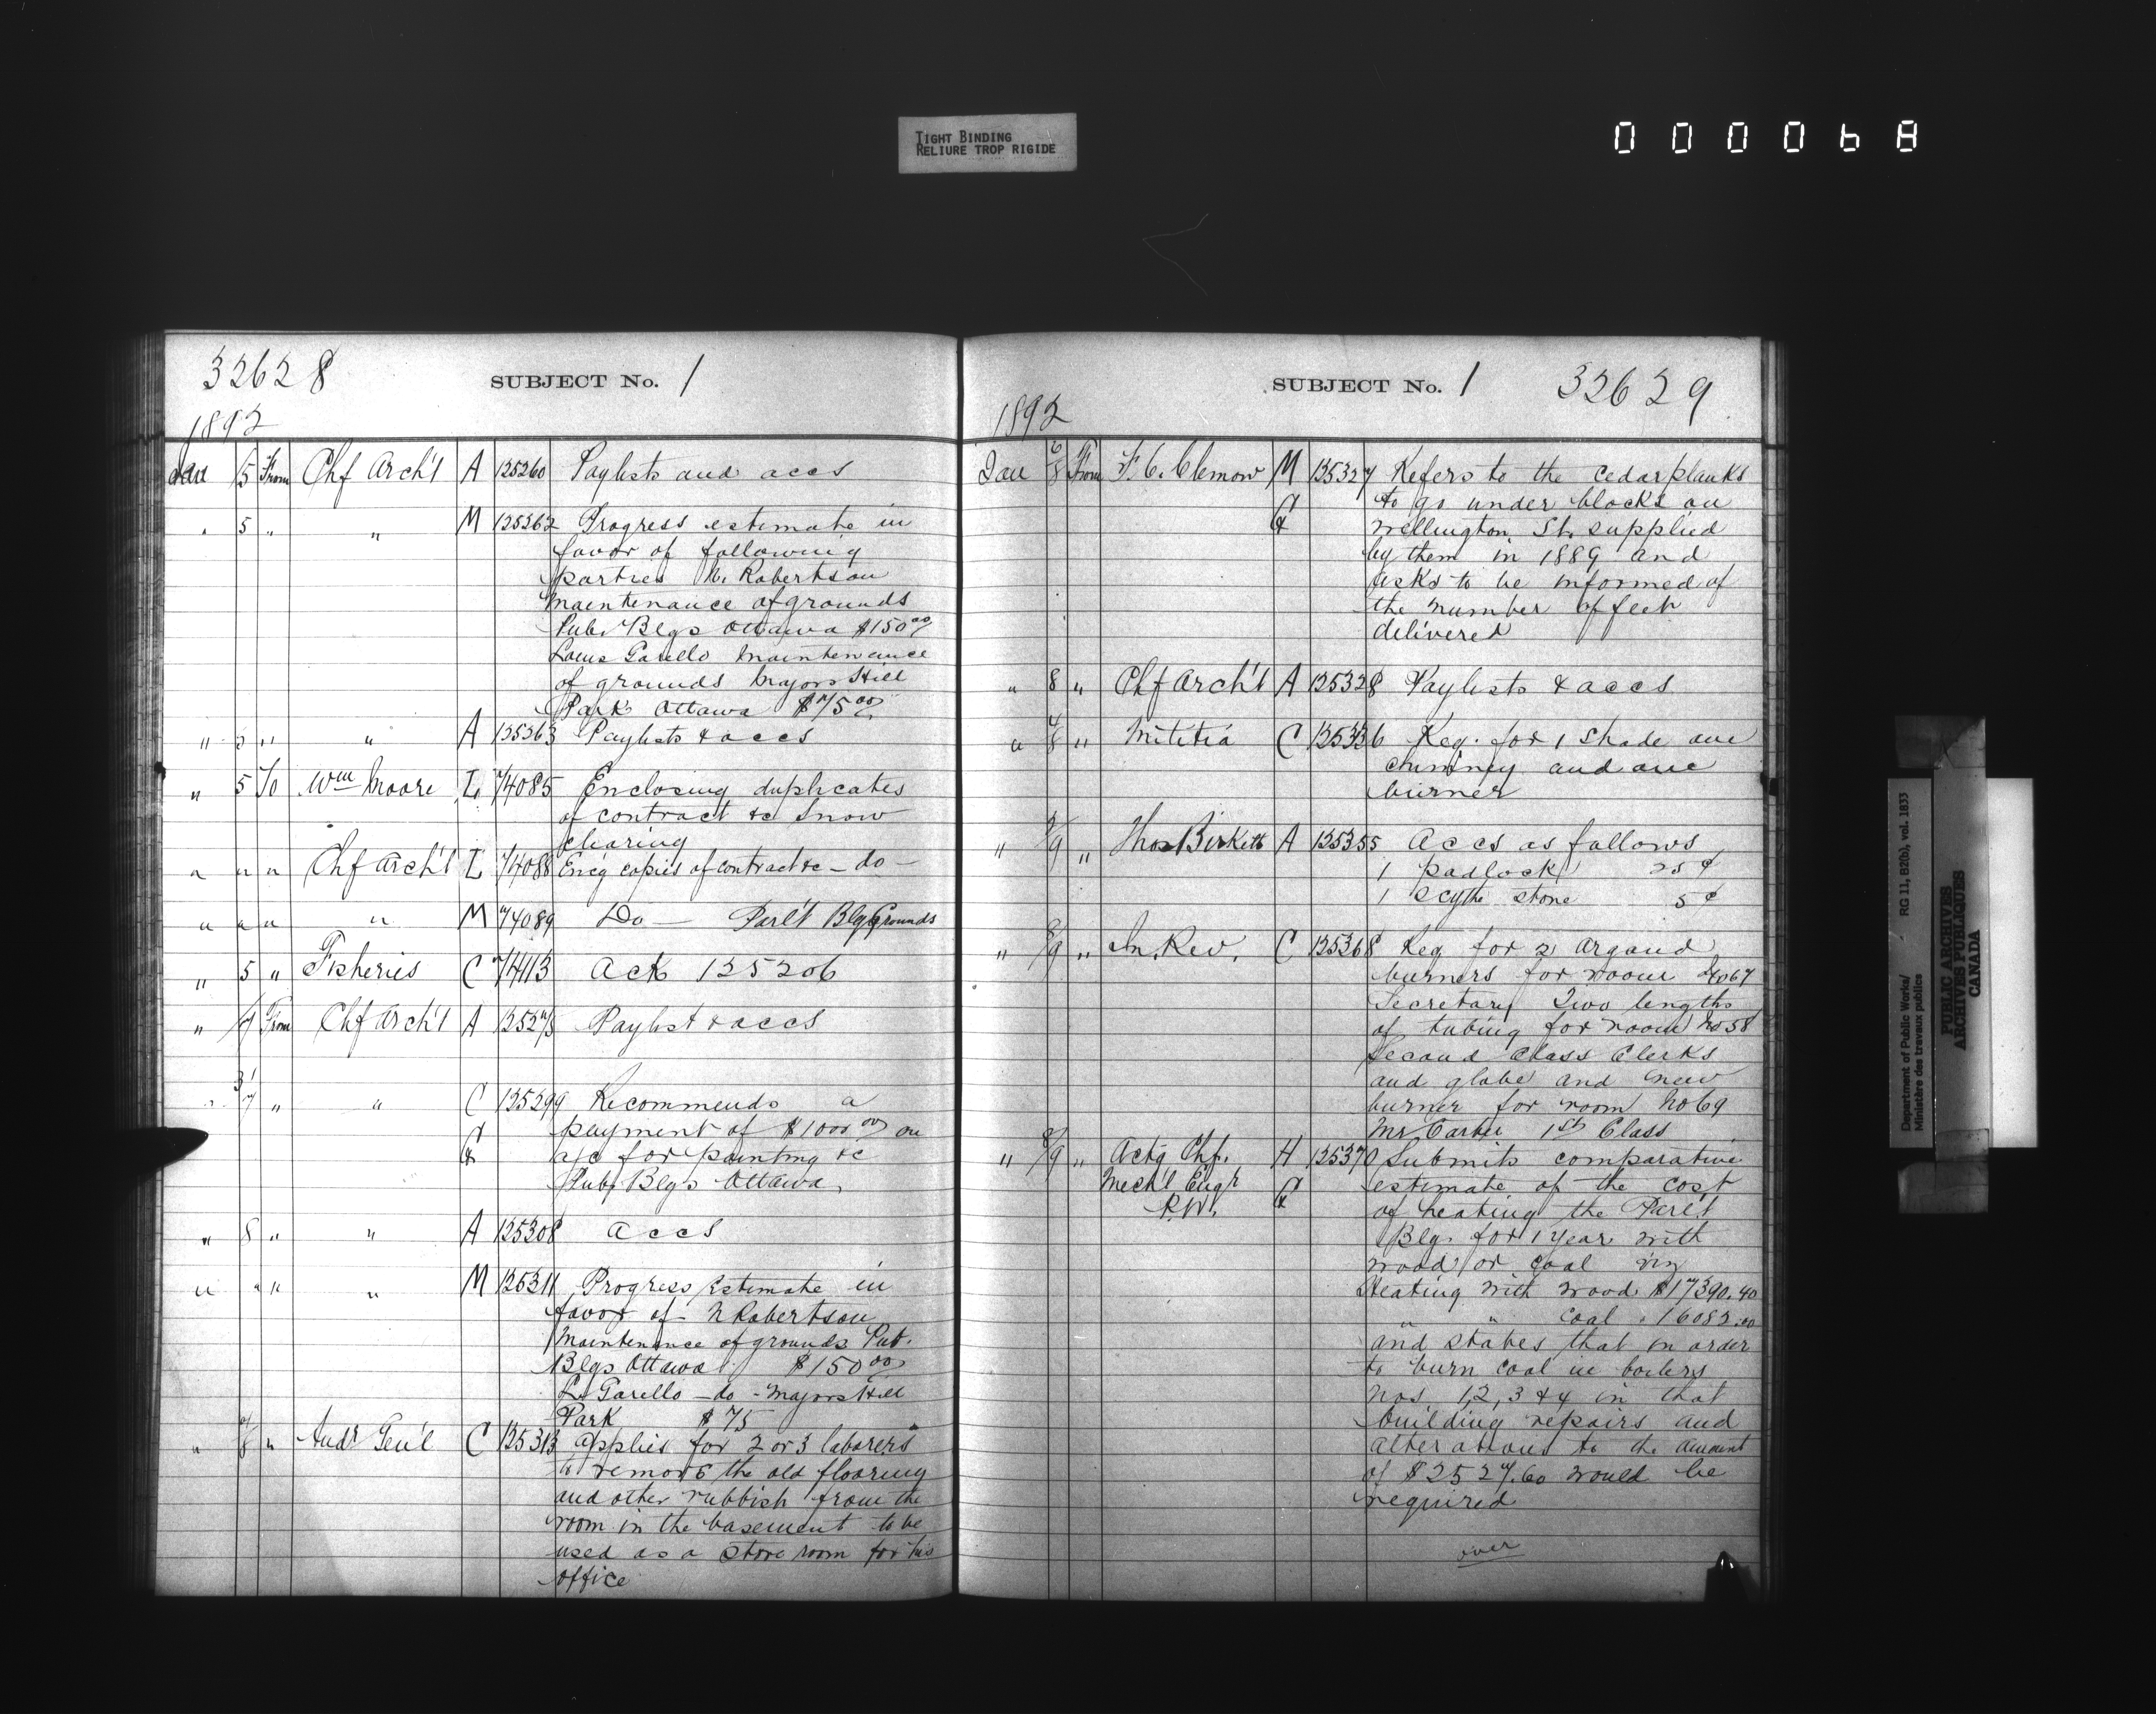 TIGHT BINDING
RELIURE TROP RIGIDE
000068
32628 SUBJECT No. 1
1892
Jan 5 From Chf Arch't A 125260 Paylists and accs
" 5 " " M 125262 Progress estimate in
favor of following
parties N. Robertson
maintenance of grounds
Pub. Blgs Ottawa $150.00
Louis Garello maintenance
of grounds Majors Hill
Park Ottawa $75.00
" 5 " " A 125263 Paylists & accs
" 5 To Wm Moore L 74085 Enclosing duplicates
of contract &c Snow
clearing
" " " Chf Arch't L 74088 Enc'g copies of contract &c – do –
" " " " M 74089 Do — Parl't Blg Grounds
" 5 " Fisheries C 74113 Ack 125206
" 7 From Chf Arch't A 125275 Paylist & accs
" 31/7 " " C 125299 Recommends a
& payment of $1000.00 on
a/c for painting &c
Pub. Blgs Ottawa
" 8 " " A 125308 accs
" " " " M 125311 Progress Estimate in
favor of – N Robertson
Maintenance of grounds Pub.
Blgs Ottawa $150.00
L. Garello – do – Majors Hill
Park $75
" 7/8 " Audr Gen'l C 125313 applies for 2 or 3 laborers
to remove the old flooring
and other rubbish from the
room in the basement to be
used as a store room for his
office
SUBJECT No. 1 32629
1892
Jan 6/8 From F. C. Clemow M 125327 Refers to the cedar planks
& to go under blocks on
Wellington St. supplied
by them in 1889 and
asks to be informed of
the number of feet
delivered
" 8 " Chf Arch't A 125328 Paylists & accs
" 4/8 " Militia C 125336 Req. for 1 shade one
chimney and one
burner
" /9 " Thos Birkett A 125355 accs as follows
1 padlock 25¢
1 scythe stone 5¢
" 8/9 " In. Rev. C 125368 Req for 2 argand
burners for room No 67
Secretary Two lengths
of tubing for room No 58
Second Class Clerks
and globe and new
burner for room No 69
Mr Carter 1st Class
" 8/9 " Actg Chf. H 125370 Submits comparative
Mech'l Engr & estimate of the cost
P.W. of heating the Parl't
Blg. for 1 year with
wood or coal viz
Heating with wood $17390.40
" " coal " 16082.00
and states that in order
to burn coal in boilers
Nos 1, 2, 3 & 4 in that
building repairs and
alterations to the amount
of $2527.60 would be
required
over
Department of Public Works/
Ministère des travaux publics
RG 11, B2(b), vol. 1833
PUBLIC ARCHIVES
ARCHIVES PUBLIQUES
CANADA